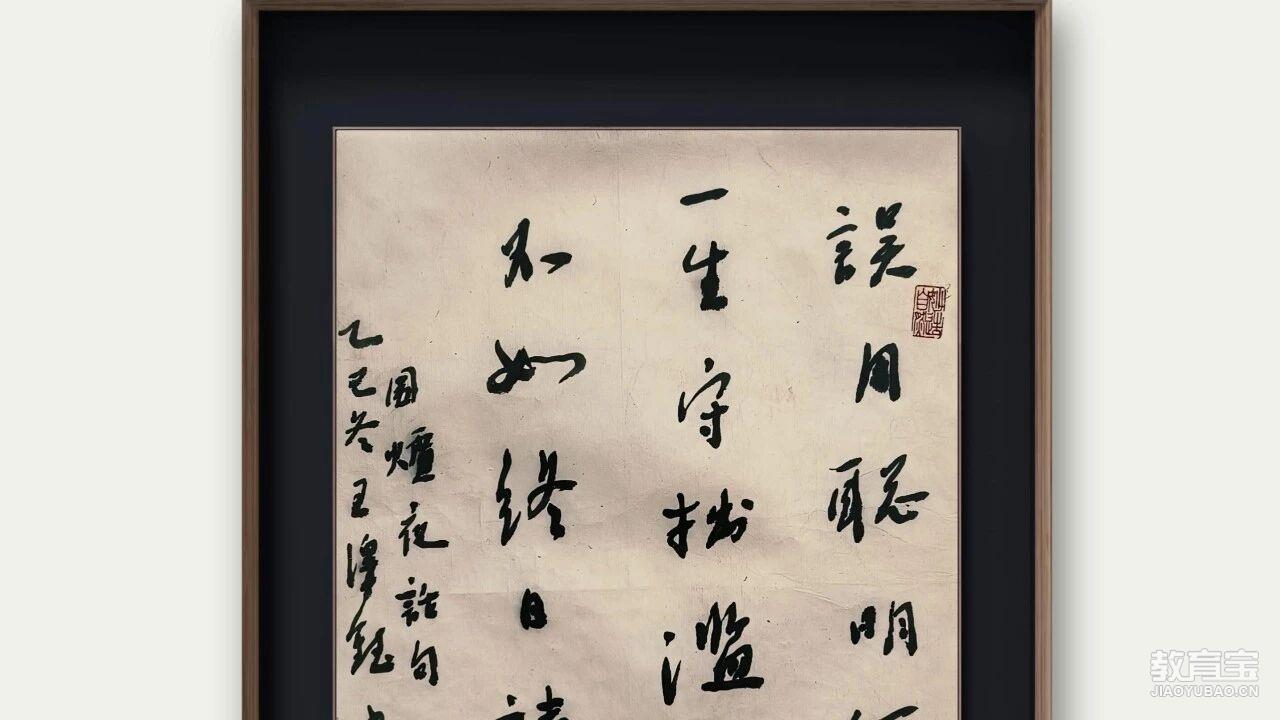 誤用聪明
一生守拙滥
不如终日
围爐夜話句
乙巳冬王澤鈺
教育宝
JIAOYUBAO.CN